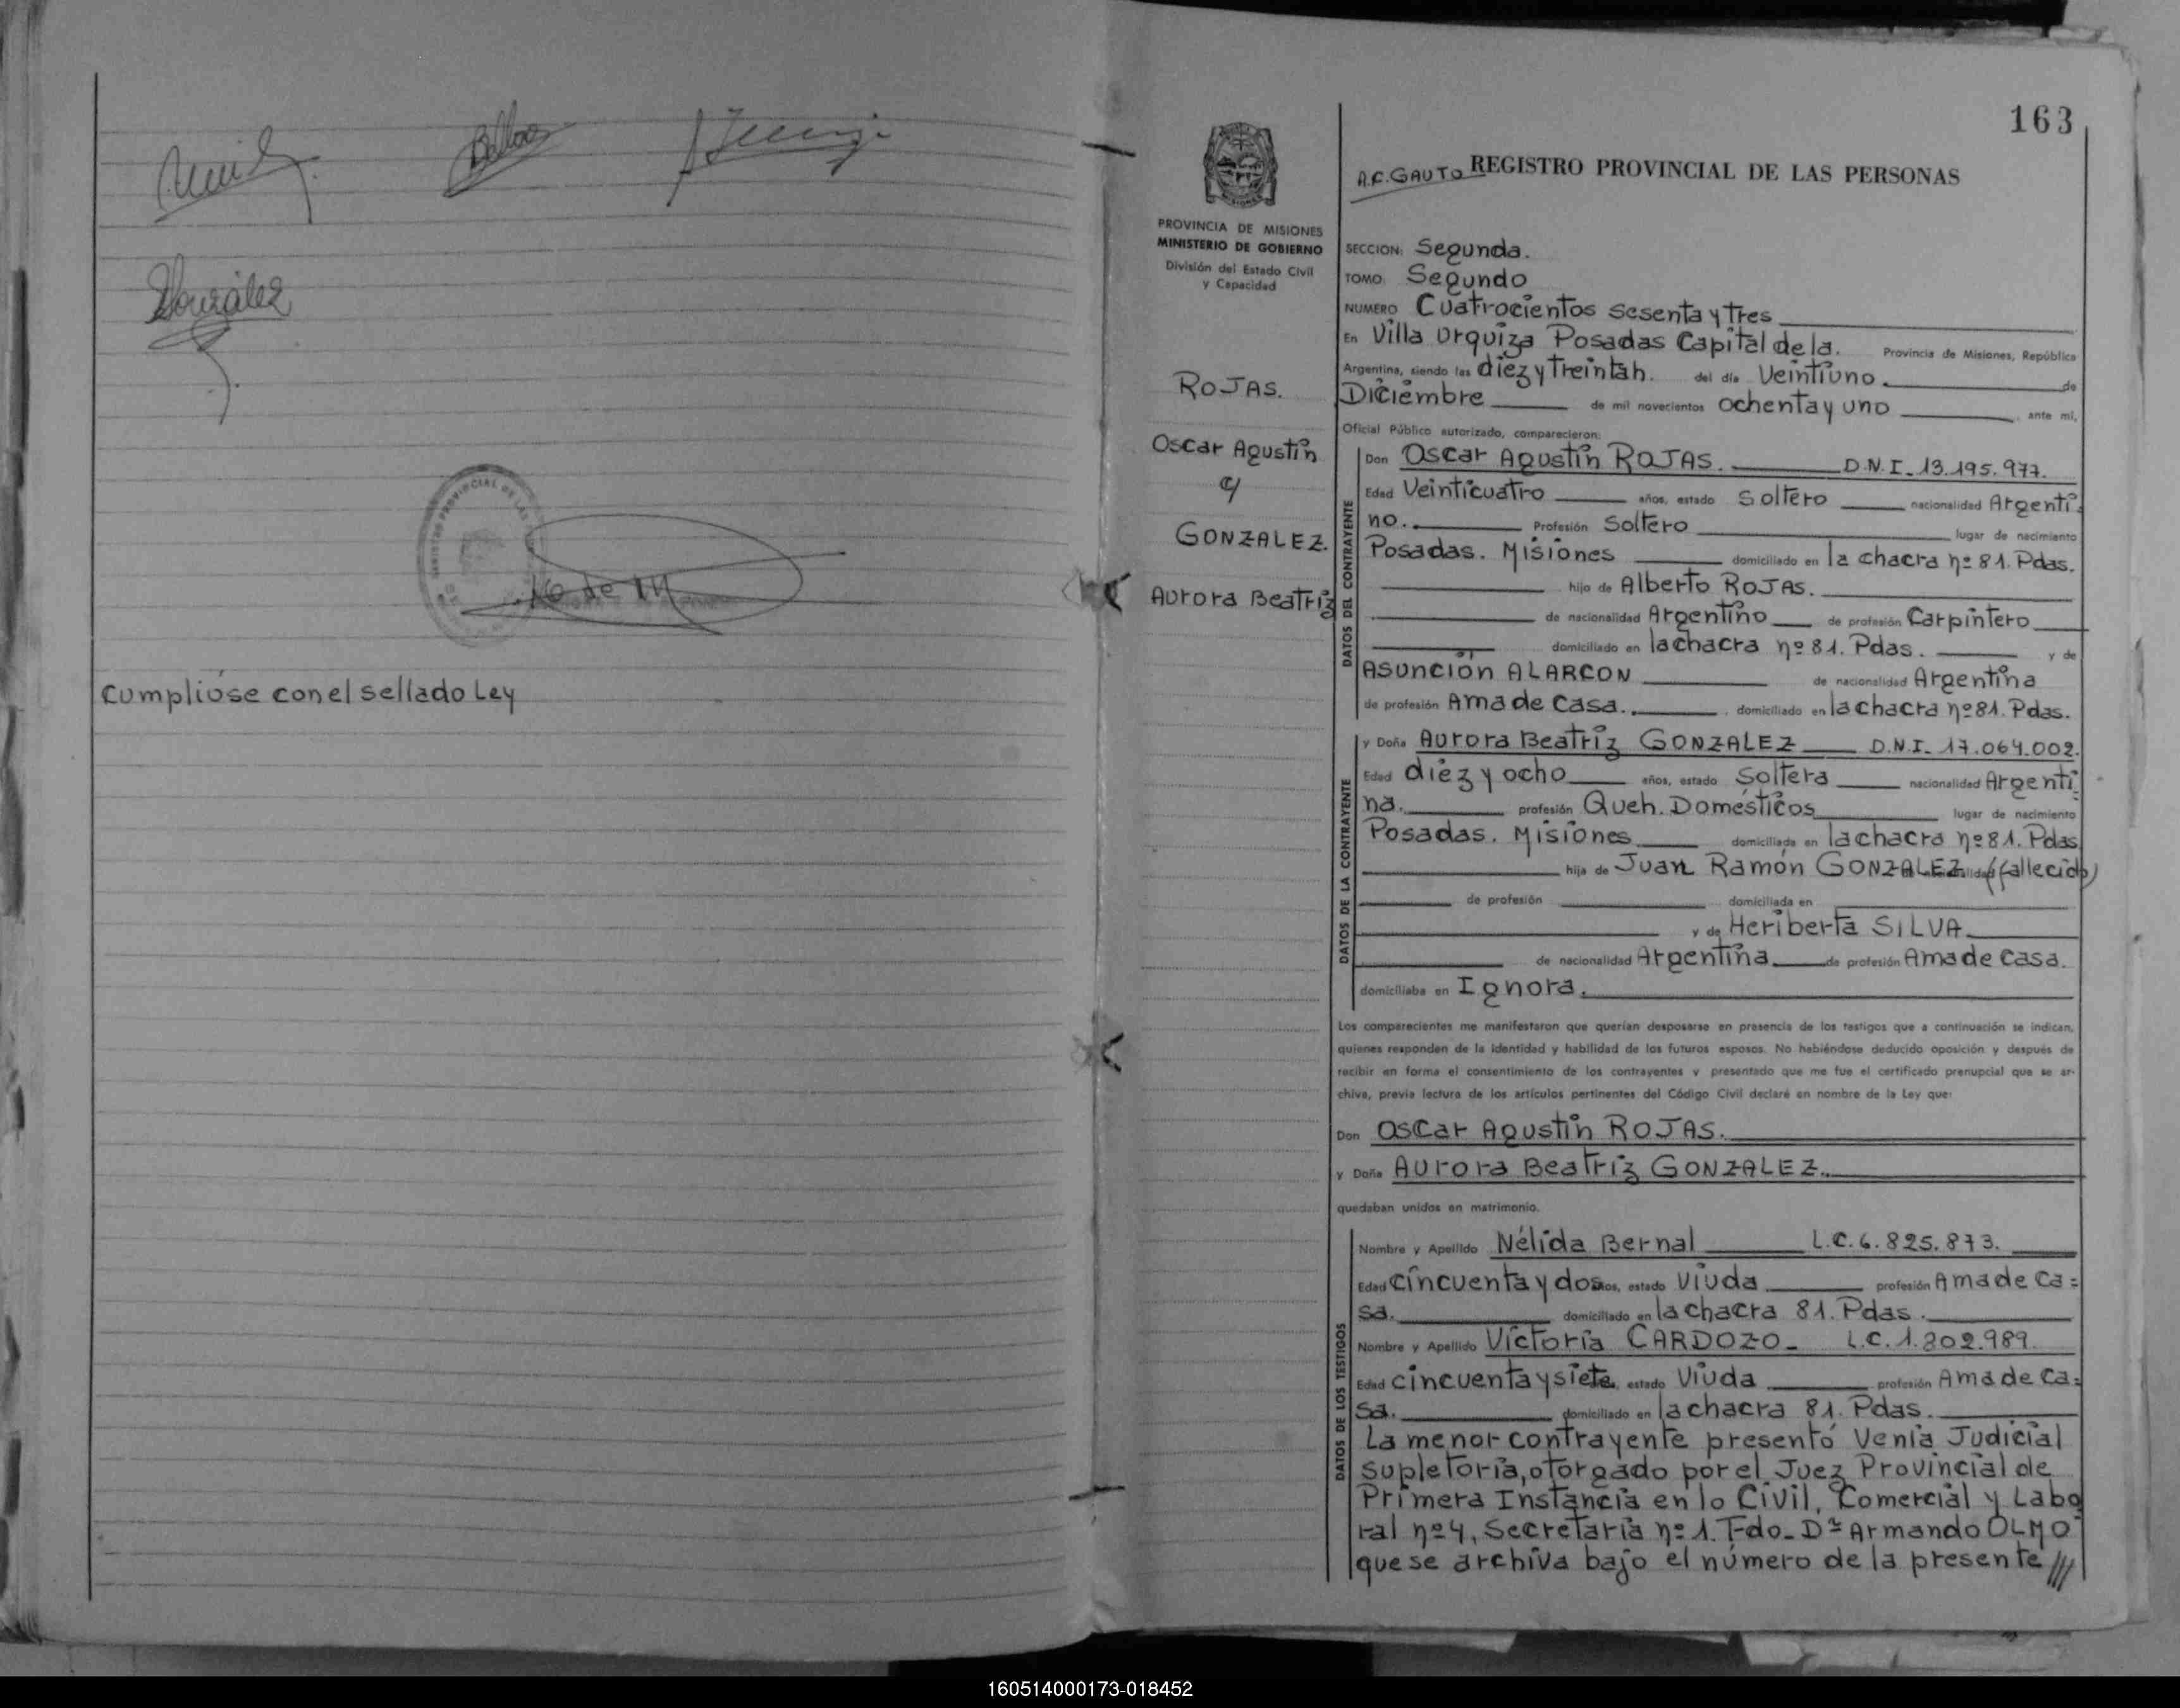 González
REGISTRO PROVINCIAL DE LAS
16 de
Cumplióse con el sellado Ley
163
A.F. GAUTO REGISTRO PROVINCIAL DE LAS PERSONAS
PROVINCIA DE MISIONES
MINISTERIO DE GOBIERNO
División del Estado Civil
y Capacidad
ROJAS.
Oscar Agustín
c/
GONZALEZ.
Aurora Beatriz
SECCION: Segunda.
TOMO: Segundo
NUMERO Cuatrocientos sesenta y tres
En Villa Urquiza Posadas Capital de la. Provincia de Misiones, República
Argentina, siendo las diez y treinta h. del día Veintiuno de
Diciembre de mil novecientos ochenta y uno ante mí,
Oficial Público autorizado, comparecieron:
DATOS DEL CONTRAYENTE
Don Oscar Agustín ROJAS. D.N.I. 13.195.977.
Edad Veinticuatro años, estado Soltero nacionalidad Argenti-
no. Profesión Soltero lugar de nacimiento
Posadas. Misiones domiciliado en la chacra nº 81. Pdas.
hijo de Alberto ROJAS.
de nacionalidad Argentino de profesión Carpintero
domiciliado en la chacra nº 81. Pdas. y de
Asunción ALARCON de nacionalidad Argentina
de profesión Ama de Casa. domiciliado en la chacra nº 81. Pdas.
DATOS DE LA CONTRAYENTE
y Doña Aurora Beatriz GONZALEZ D.N.I. 17.064.002.
Edad diez y ocho años, estado Soltera nacionalidad Argenti-
na. profesión Queh. Domésticos lugar de nacimiento
Posadas. Misiones domiciliada en la chacra nº 81. Pdas
hija de Juan Ramón GONZALEZ (fallecido)
de profesión domiciliada en
y de Heriberta SILVA.
de nacionalidad Argentina de profesión Ama de Casa.
domiciliaba en Ignora.
Los comparecientes me manifestaron que querían desposarse en presencia de los testigos que a continuación se indican,
quienes responden de la identidad y habilidad de los futuros esposos. No habiéndose deducido oposición y después de
recibir en forma el consentimiento de los contrayentes y presentado que me fue el certificado prenupcial que se ar-
chiva, previa lectura de los artículos pertinentes del Código Civil declaré en nombre de la Ley que:
Don Oscar Agustín ROJAS.
y Doña Aurora Beatriz GONZALEZ.
quedaban unidos en matrimonio.
DATOS DE LOS TESTIGOS
Nombre y Apellido Nélida Bernal L.C. 6.825.873.
Edad Cincuenta y dos años, estado Viuda profesión Ama de Ca=
sa. domiciliado en la chacra 81. Pdas.
Nombre y Apellido Victoria CARDOZO- L.C. 1.802.989.
Edad cincuenta y siete, estado Viuda profesión Ama de Ca=
sa. domiciliado en la chacra 81. Pdas.
La menor contrayente presentó Venia Judicial
supletoria, otorgado por el Juez Provincial de
Primera Instancia en lo Civil, Comercial y Labo
ral nº 4, Secretaría nº 1. Fdo- Dr Armando OLMO
que se archiva bajo el número de la presente ///
160514000173-018452